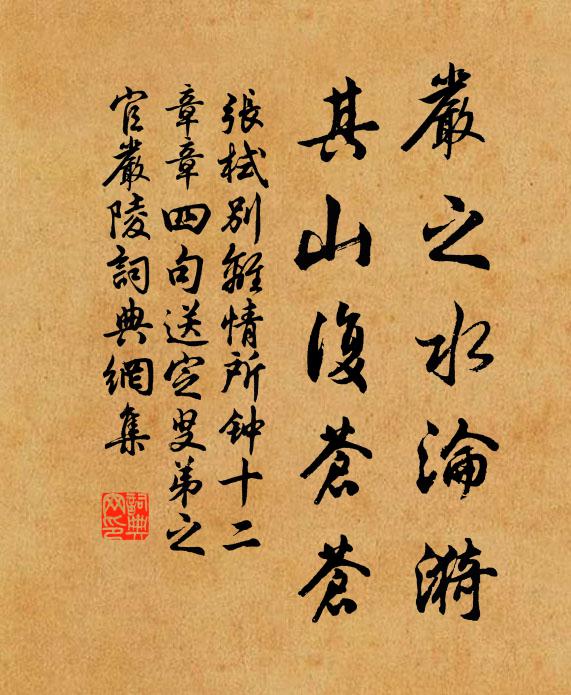 嚴之水淪漪
其山復蒼蒼
張栻別離情所钟十二
章章四句送定叟弟之
官嚴陵詞典網集
詞典網印